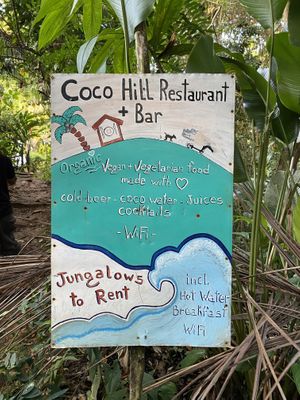 Coco Hill Restaurant
+ Bar
Organic Vegan + Vegetarian food
made with ♡
cold beer - coco water - Juices
cocktails
- WiFi -
Jungalows
to Rent
incl.
Hot Water
Breakfast
WiFi